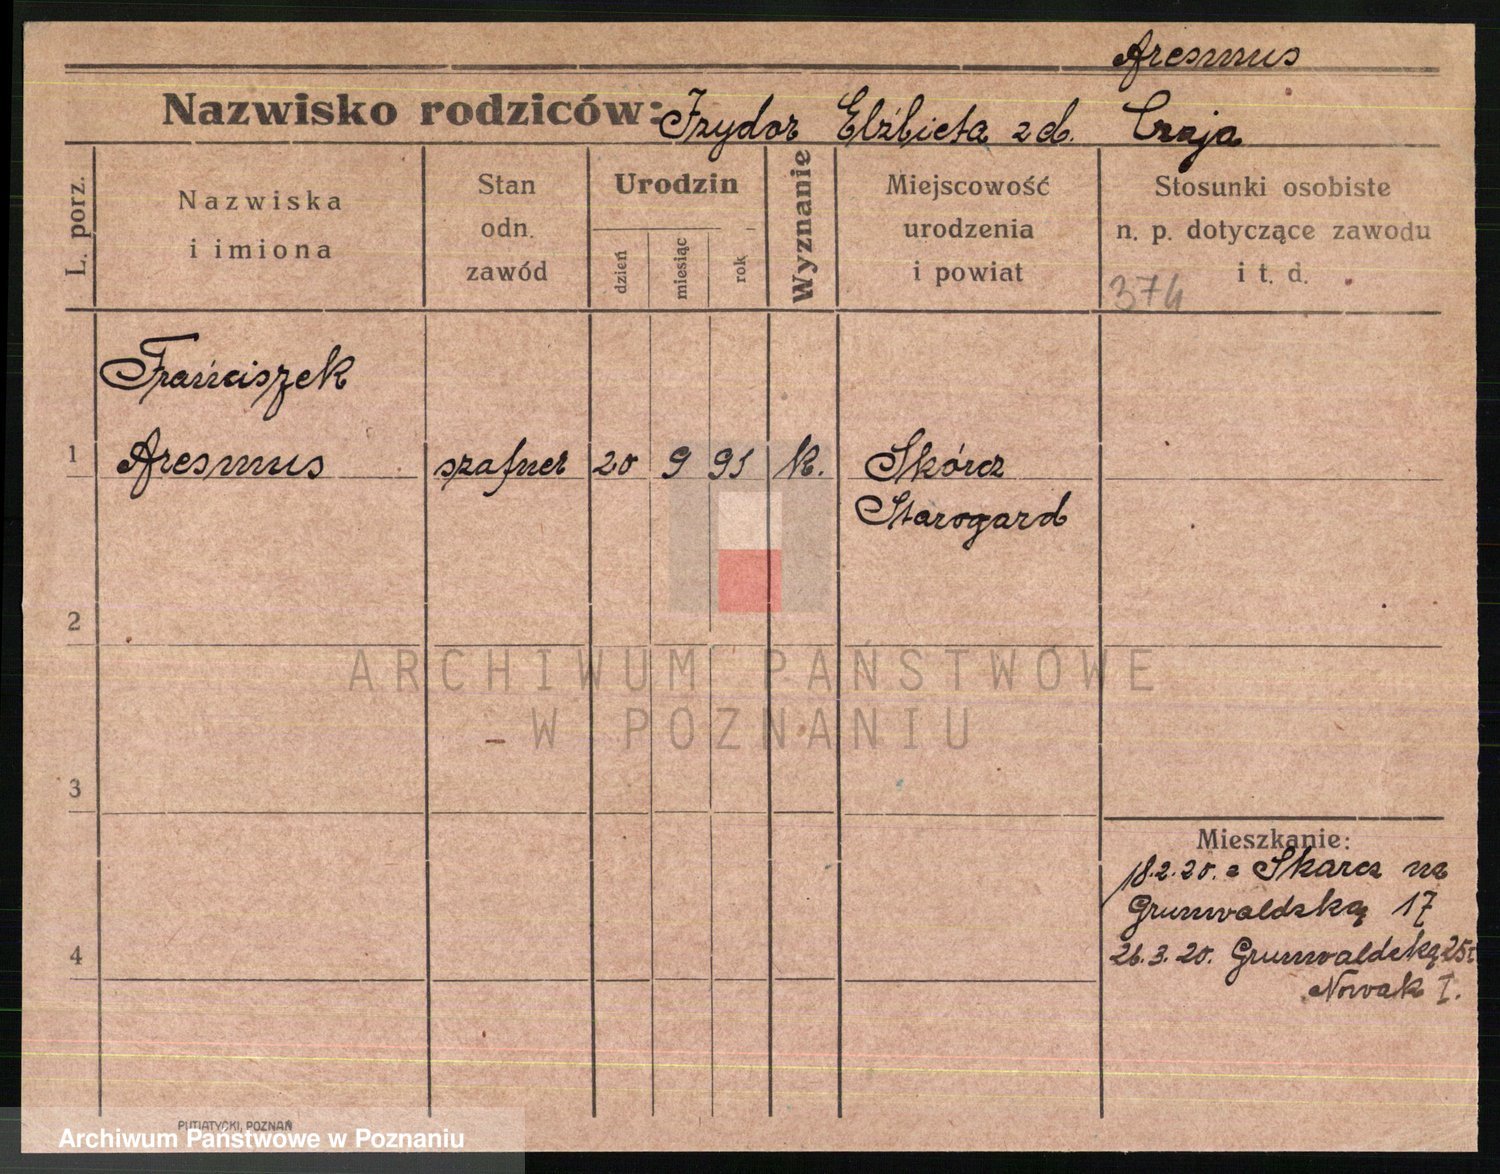 Aresmus
Nazwisko rodziców: Izydor Elżbieta z d. Czaja
L. porz.
Nazwiska
i imiona
Stan
odn.
zawód
Urodzin
dzień
miesiąc
rok
Wyznanie
Miejscowość
urodzenia
i powiat
Stosunki osobiste
n. p. dotyczące zawodu
i t. d.
374
Franciszek
1 Aresmus szafner 20 9 91 k. Skórcz
Starogard
2
3
4
Mieszkanie:
18.2.20. z Skarcz na
Grunwaldzką 17
26.3.20. Grunwaldzką 25
Nowak I.
ARCHIWUM PAŃSTWOWE
W POZNANIU
PUTIATYCKI, POZNAŃ
Archiwum Państwowe w Poznaniu